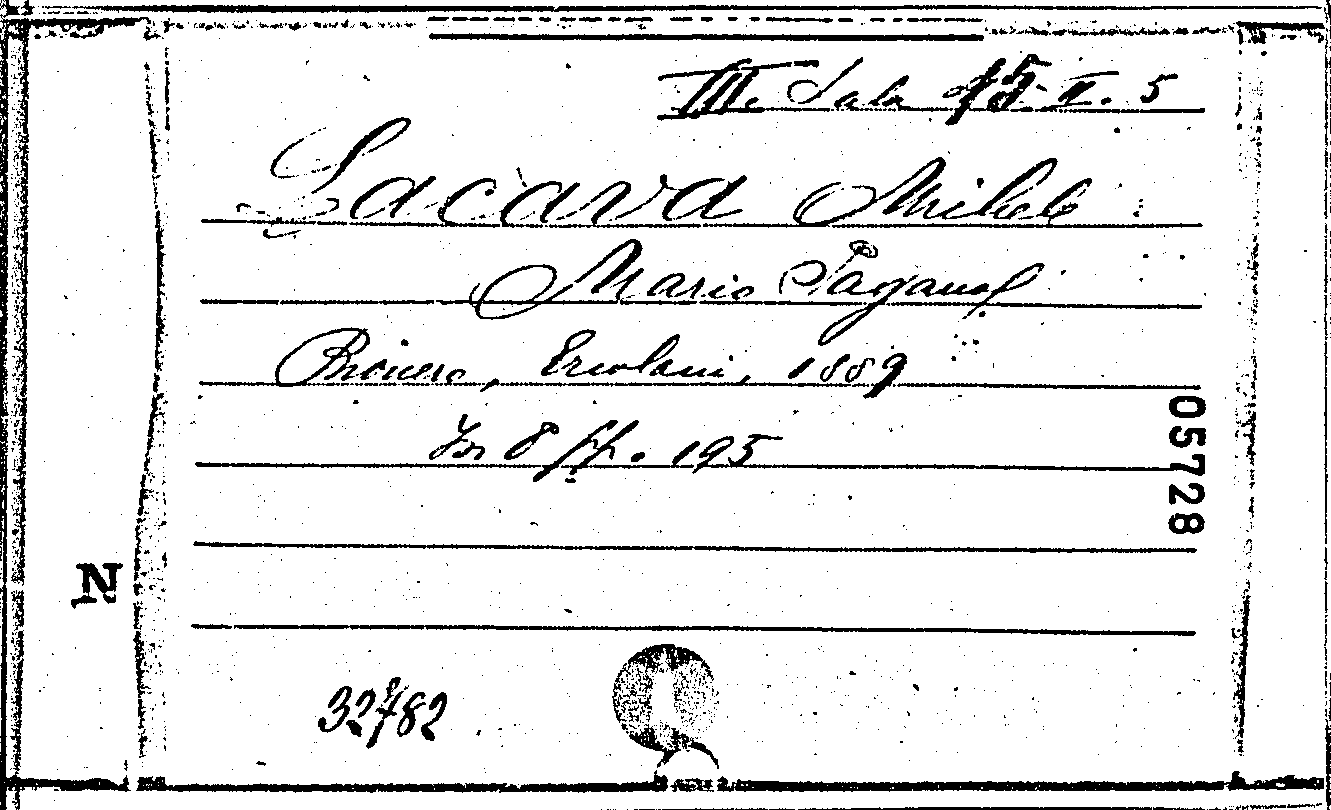 III. Sala 15. II. 5
Lacava Michele
Mario Pagano
Rionero, Ercolani, 1889
In 8 pp. 195
05728
N
32782